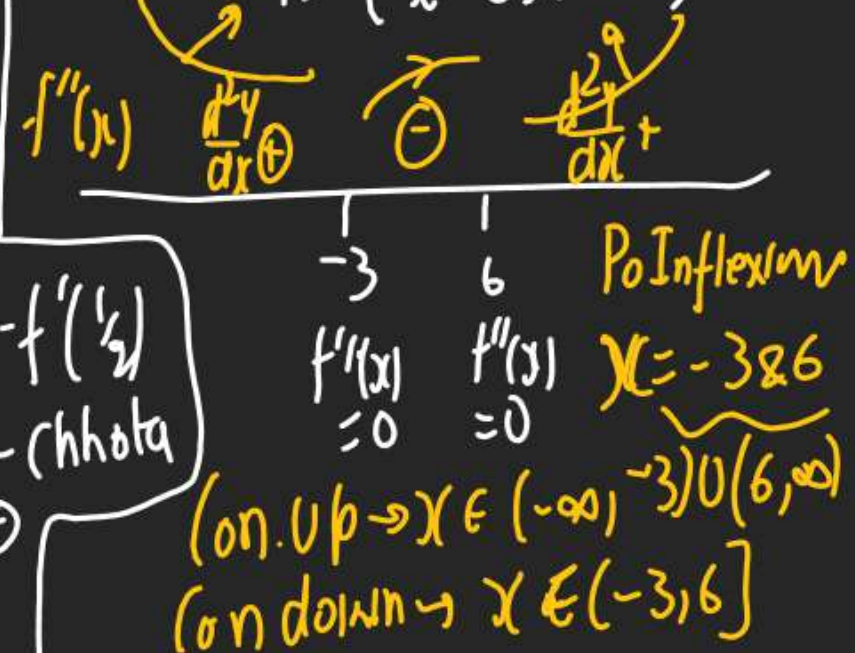 f''(x) d²y/dx ⊕ ⊖ d²y/dx +
-3 6 Po Inflexion
f'(1/2) f''(x) =0 f''(x) =0 x = -3 & 6
chhota
Con. Up → x ∈ (-∞, -3) U (6, ∞)
Con down → x ∈ (-3, 6]